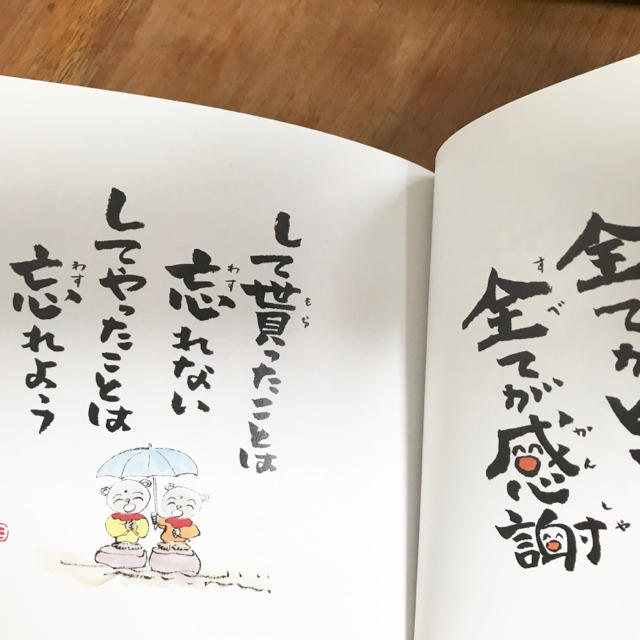 全てが
全てが感謝
すべ
かんしゃ
して貰ったことは
もら
忘れない
わす
してやったことは
忘れよう
わす